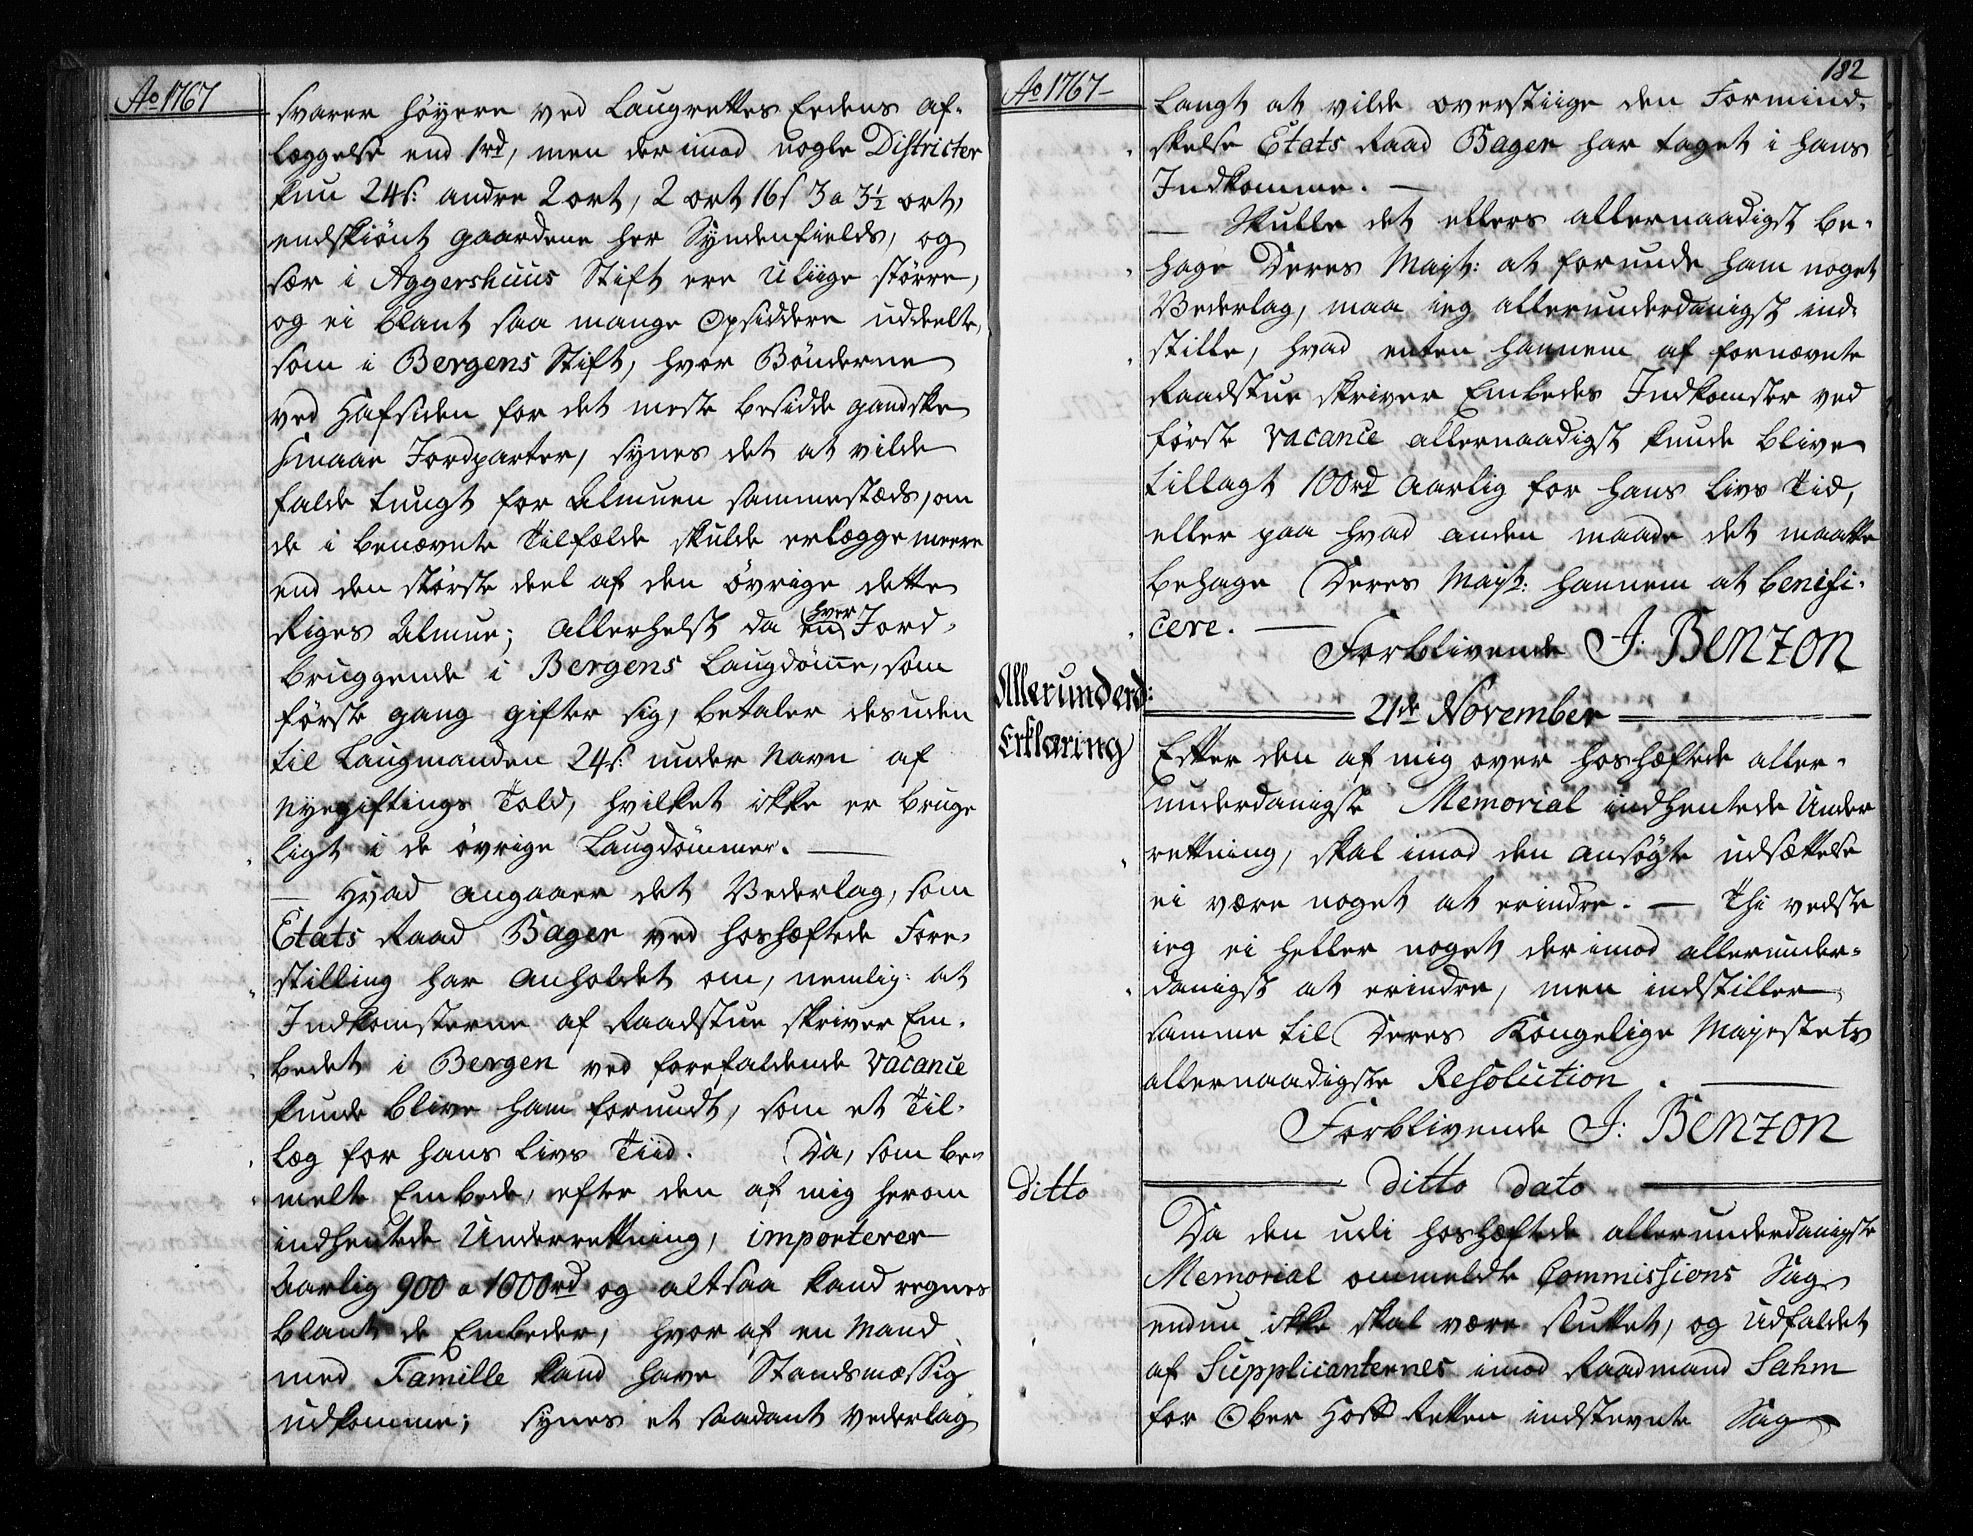 Ao 1767
svarer höyere ved Laugrettes Eedens af-
læggelse end 1rd, men derimod nogle Districter
kun 24s: andre 2 ort, 2 ort 16s 3 a 3½ ort,
endskiönt gaardene her Syndenfields, og
sær i Aggershuus Stift ere Uliige större,
og ei blant saa mange Opsiddere uddeelte,
som i Bergens Stift, hvor Bönderne
ved Hafsiden for det meste besidde gandske
smaae Jordparter, synes det at vilde
falde tungt for Almuen sammestæds, om
de i benævnte Tilfælde skulde erlægge meere
end den störste deel af den övrige dette
Riges Almue; Allerhelst da hver Jord-
bruggende i Bergens Laugdömme, som
förste gang gifter sig, betaler desuden
til Laugmanden 24s: under Navn af
Nyegiftings Told, hvilket ikke er bruge
ligt i de övrige Laugdömmer. —
— Hvad angaaer det Vederlag, som
Etats Raad Bager ved hoshæftede Fore-
stilling har anholdet om, nemlig: at
Indkomsterne af Raadstue skriver Em-
bedet i Bergen ved forefaldende Vacance
kunde blive ham forundt, som et Til-
læg for hans Livs Tiid. Da, som be-
melte Embede, efter den af mig herom
indhentede Underrettning, importerer
Aarlig 900 a 1000rd og altsaa kand regnes
blant de Embeder, hvor af en Mand
med Famille kand have Standsmæssig
udkomme; synes et saadant Vederlag
Ao 1767
182
Langt at vilde overstiige den Formind-
skelse Etats Raad Bager har taget i hans
Indkomme. —
— Skulle det ellers allernaadigst be-
hage Deres Mayt: at forunde ham noget
Vederlag, maa ieg allerunderdanigst ind-
stille, hvad enten hannem af fornævnte
Raadstue skriver Embedes Indkomster ved
förste vacance allernaadigst kunde blive
tillagt 100rd Aarlig for hans Livs Tid,
eller paa hvad anden maade det maatte
behage Deres Mayt: hannem at benifi-
cere. —
Forblivende J: Benzon
Allerunderd:
Erklæring
21de November
Efter den af mig over hoshæftede aller-
underdanigste Memorial indhentede Under
rettning, skal imod den ansögte udsættelse
ei være noget at erindre. — Thi vedste
ieg ei heller noget derimod allerunder-
danigst at erindre, men indstiller
samme til Deres Kongelige Majestets
allernaadigste Resolution. —
Forblivende J: Benzon
ditto
ditto dato
Da den udi hoshæftede allerunderdanigste
Memorial ommeldte Commissions Sag
endnu ikke skal være sluttet, og Udfaldet
af Supplicanternes imod Raadmand Sahm
for Ober Hoff Retten indstevnte Sag